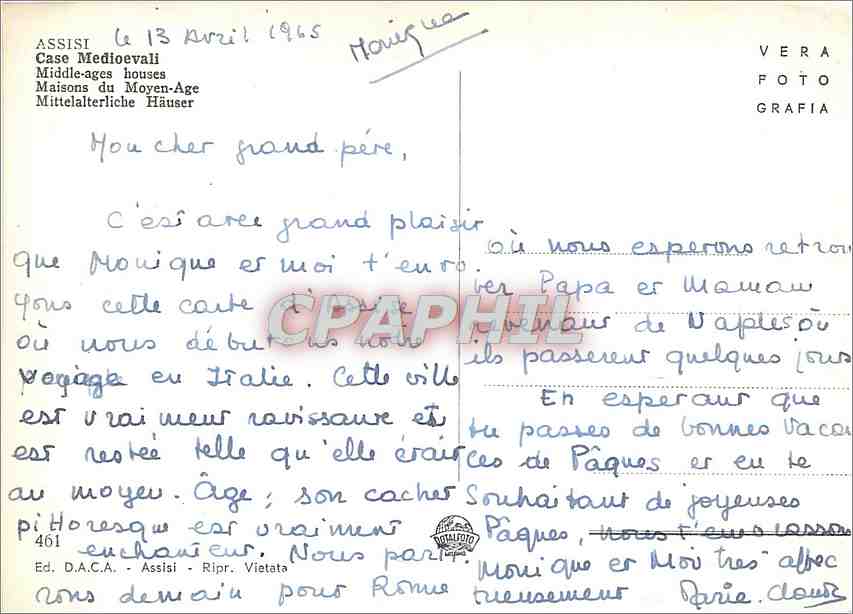 ASSISI
Case Medioevali
Middle-ages houses
Maisons du Moyen-Age
Mittelalterliche Häuser
le 13 Avril 1965
Monique
VERA
FOTO
GRAFIA
Mon cher grand père,
C'est avec grand plaisir
que Monique et moi t'envo
yons cette carte d'Assise
où nous débutons notre
voyage en Italie. Cette ville
est vraiment ravissante et
est restée telle qu'elle était
au moyen-Âge; son cachet
pittoresque est vraiment
enchanteur. Nous parti
rons demain pour Rome
où nous esperons retrou
ver Papa et Maman
revenant de Naples où
ils passerent quelques jours
En esperant que
tu passes de bonnes vacan
ces de Pâques et en te
Souhaitant de joyeuses
Pâques, nous t'embrassons
Monique et Moi très affec
tueusement Marie-Claude
461
Ed. D.A.C.A. - Assisi - Ripr. Vietata
ROTALFOTO
CPAPHIL